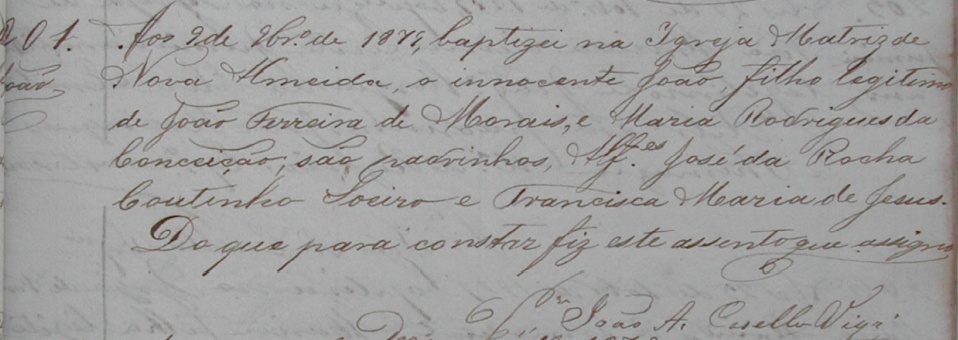 201. Aos 2 de 9br.o de 1879, baptizei na Igreja Matriz de
João Nova Almeida, o innocente João, filho legitimo
de João Ferreira de Morais, e Maria Rodrigues da
Conceição; são padrinhos, Alf.es José da Rocha
Coutinho Loeiro e Francisca Maria de Jesus.
Do que para constar fiz este assento que assigno
João A. Casella Vigr